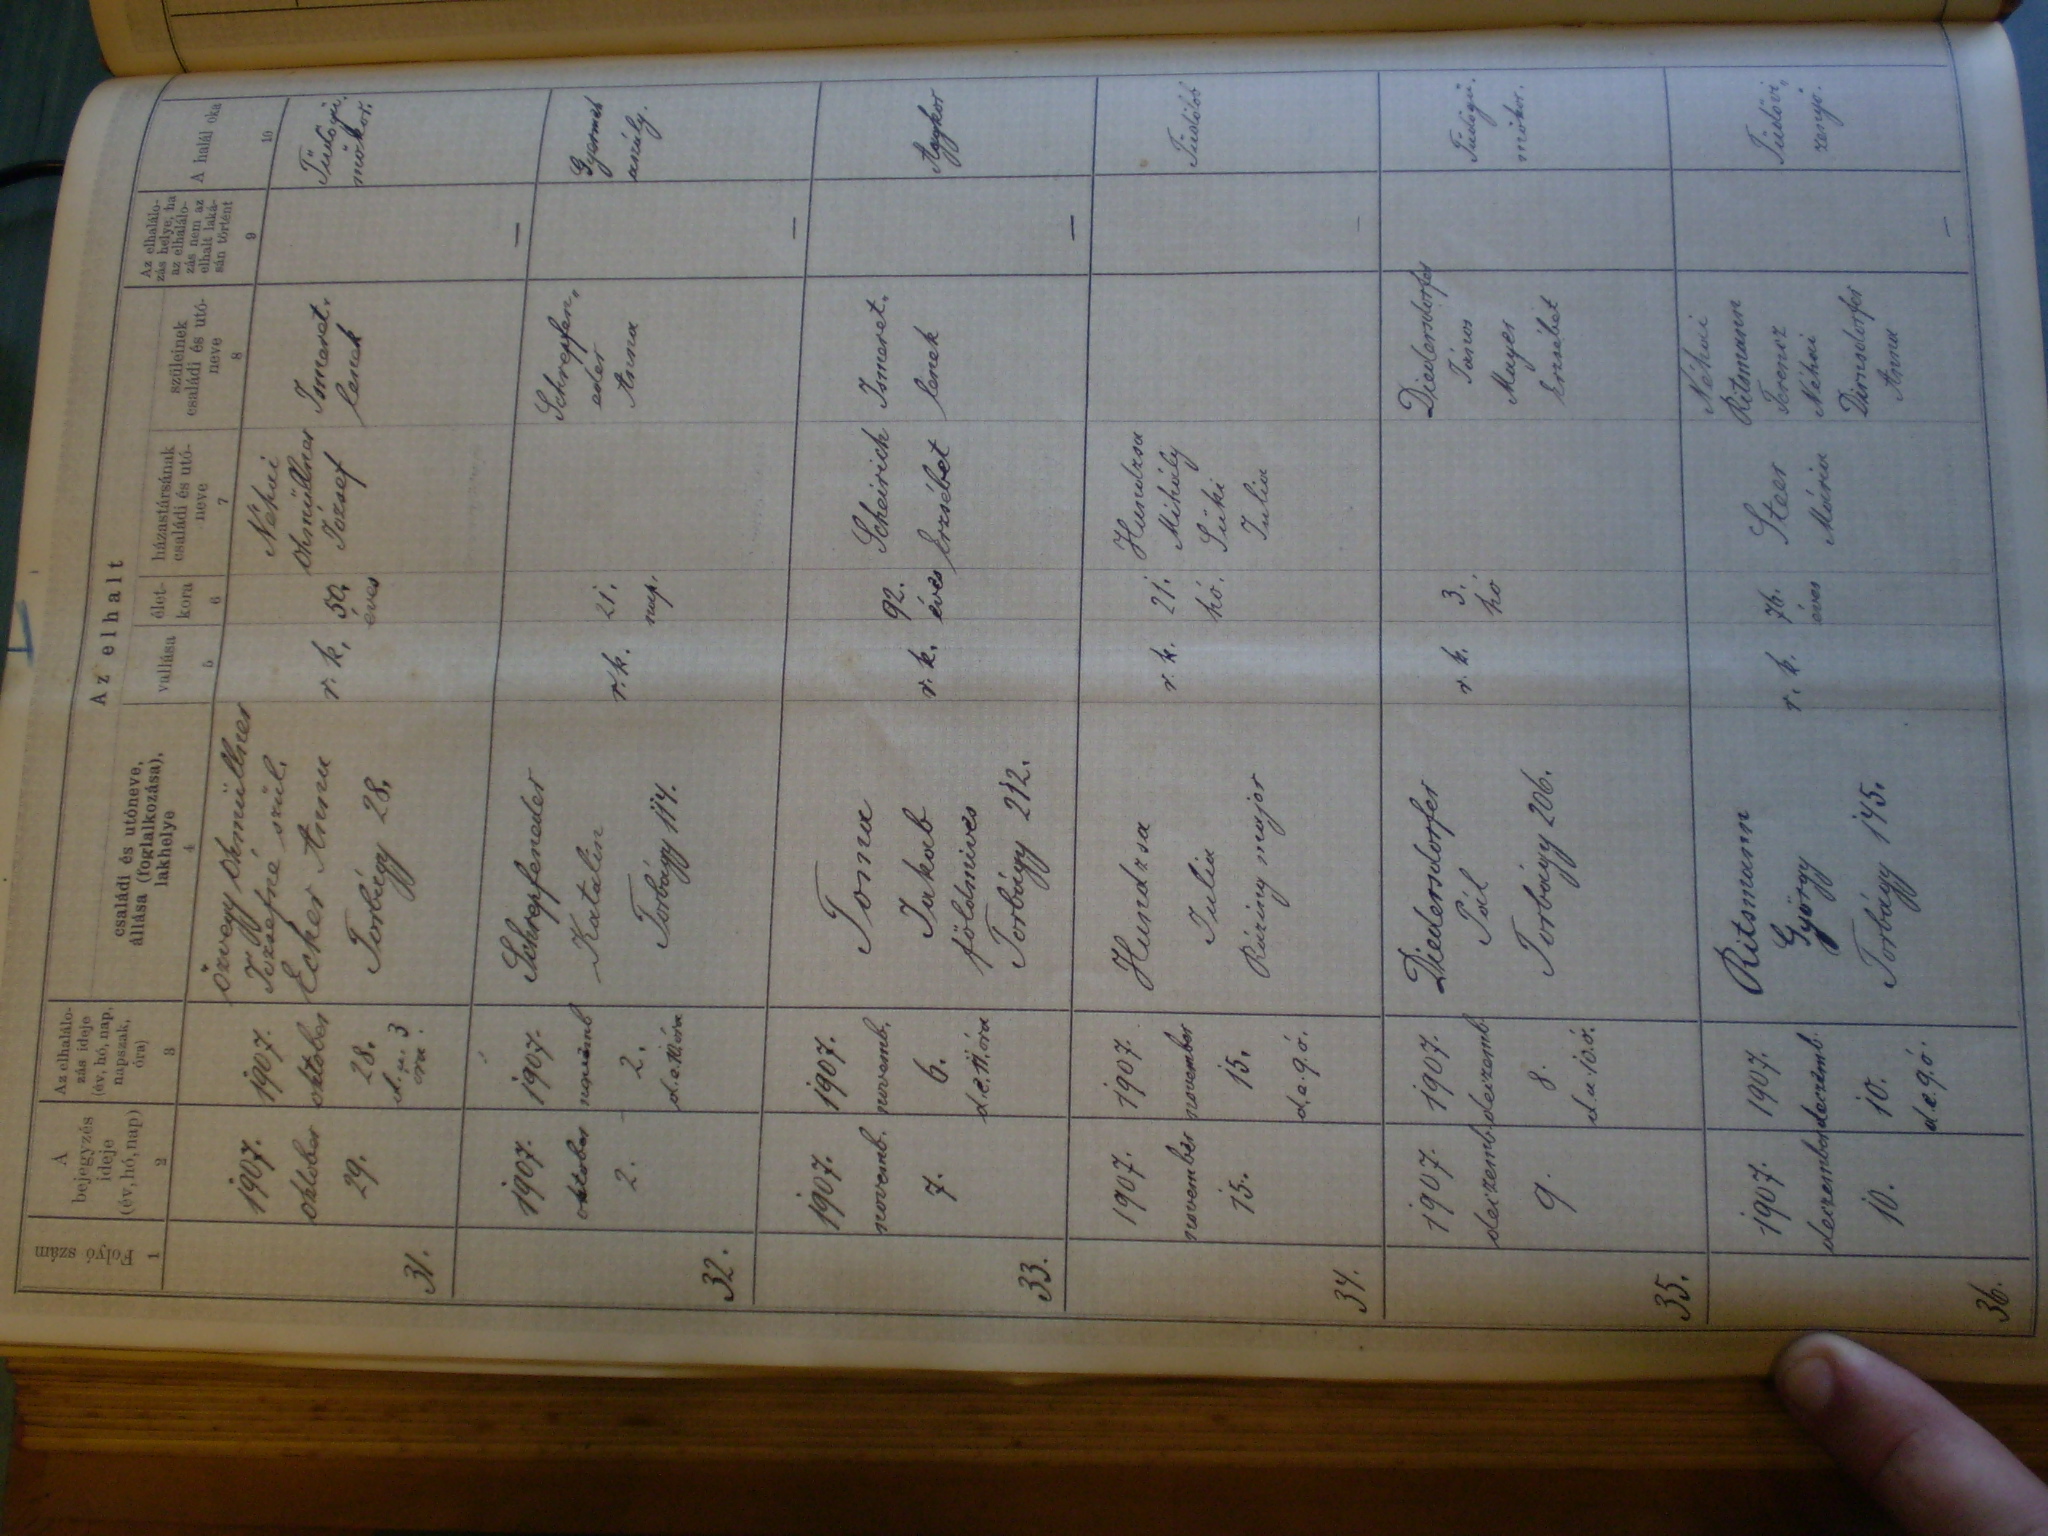 Az elhalt
Folyó szám
A bejegyzés ideje (év, hó, nap)
Az elhalálo-
zás ideje
(év, hó, nap,
napszak,
óra)
családi és utóneve,
állása (foglalkozása),
lakhelye
vallása
élet-
kora
házastársának
családi és utó-
neve
szüleinek
családi és utó-
neve
Az elhalálo-
zás helye, ha
az elhalálo-
zás nem az
elhalt laká-
sán történt
A halál oka
1 2 3 4 5 6 7 8 9 10
31.
1907.
október
29.
1907.
október
28.
d.u. 3
óra.
özvegy Ohmüllner
Józsefné szül.
Ecker Anna
Torbágy 28.
r. k.
50.
éves
Néhai
Ohmüllner
József
Ismeret.
lenek
Tüdőgü.
mőkór.
32.
1907.
október
2.
1907.
novemb
2.
d.e. 10. óra
Schrepfeneder
Katalin
Torbágy 114.
r. k.
21.
nap.
Schrepfen.
eder
Anna
—
Gyermek
aszály.
33.
1907.
novemb.
7.
1907.
novemb.
6.
d.e. 11. óra
Tona
Jakab
földmives
Torbágy 212.
r. k.
92.
éves
Scheirich
Erzsébet
Ismeret.
lenek
—
Aggkor
34.
1907.
november
15.
1907.
november
15.
d.e. 9. ó.
Hundzsa
Julia
Rázing major
r. k.
21.
hó.
Hundzsa
Mihály
Süki
Julia
—
Tüdőlob
35.
1907.
deczemb
9.
1907.
deczemb.
8.
d.u. 10. ó.
Diedersdorfer
Pál
Torbágy 206.
r. k.
3.
hó
Diedersdorfer
János
Mayer
Erzsébet
Tüdőgü.
mőkór.
36.
1907.
deczember
10.
1907.
deczemb.
10.
d.e. 9. ó.
Ritsmann
György
Torbágy 145.
r. k.
76.
éves
Steer
Mária
Néhai
Ritsmann
Ferencz
Néhai
Dirnsdorfer
Anna
—
Tüdővi.
zenyő.